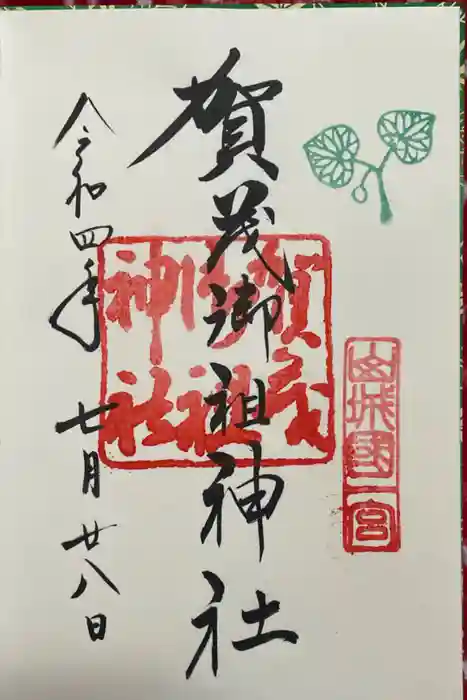 山城國一宮
賀茂御祖神社
賀茂御祖神社
令和四年七月廿八日